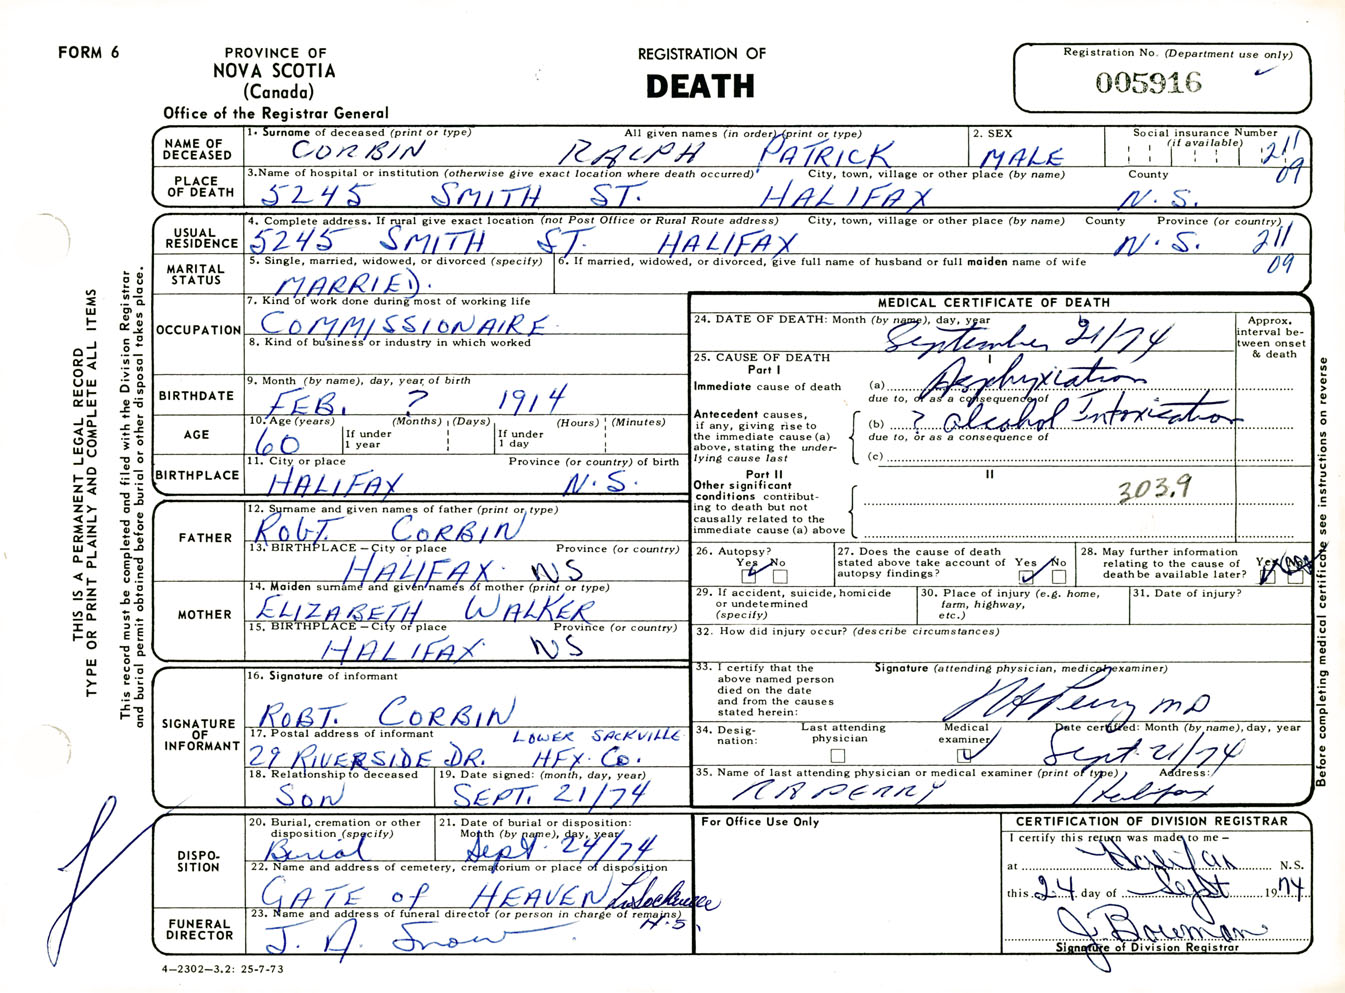 FORM 6
PROVINCE OF
NOVA SCOTIA
(Canada)
Office of the Registrar General
REGISTRATION OF
DEATH
Registration No. (Department use only)
005916
NAME OF DECEASED
1. Surname of deceased (print or type) All given names (in order) (print or type)
CORBIN RALPH PATRICK
2. SEX
MALE
Social insurance Number
(if available)
211
09
PLACE OF DEATH
3. Name of hospital or institution (otherwise give exact location where death occurred) City, town, village or other place (by name) County
5245 SMITH ST. HALIFAX N.S.
USUAL RESIDENCE
4. Complete address. If rural give exact location (not Post Office or Rural Route address) City, town, village or other place (by name) County Province (or country)
5245 SMITH ST. HALIFAX N.S. 211
09
MARITAL STATUS
5. Single, married, widowed, or divorced (specify)
MARRIED.
6. If married, widowed, or divorced, give full name of husband or full maiden name of wife
OCCUPATION
7. Kind of work done during most of working life
COMMISSIONAIRE
8. Kind of business or industry in which worked
BIRTHDATE
9. Month (by name), day, year of birth
FEB. ? 1914
AGE
10. Age (years) (Months) (Days) (Hours) (Minutes)
60 If under 1 year If under 1 day
BIRTHPLACE
11. City or place Province (or country) of birth
HALIFAX N.S.
FATHER
12. Surname and given names of father (print or type)
ROBT. CORBIN
13. BIRTHPLACE – City or place Province (or country)
HALIFAX NS
MOTHER
14. Maiden surname and given names of mother (print or type)
ELIZABETH WALKER
15. BIRTHPLACE – City or place Province (or country)
HALIFAX NS
SIGNATURE OF INFORMANT
16. Signature of informant
ROBT. CORBIN
17. Postal address of informant LOWER SACKVILLE
29 RIVERSIDE DR. HFX. CO.
18. Relationship to deceased
SON
19. Date signed: (month, day, year)
SEPT. 21/74
DISPO-
SITION
20. Burial, cremation or other disposition (specify)
Burial
21. Date of burial or disposition: Month (by name), day, year
Sept 24/74
22. Name and address of cemetery, crematorium or place of disposition
GATE of HEAVEN L. Sackville
N.S.
FUNERAL DIRECTOR
23. Name and address of funeral director (or person in charge of remains)
J. A. Snow
4–2302–3.2: 25-7-73
MEDICAL CERTIFICATE OF DEATH
24. DATE OF DEATH: Month (by name), day, year
September 21/74
Approx. interval between onset & death
25. CAUSE OF DEATH
Part I
I
Immediate cause of death (a) Asphyxiation
due to, or as a consequence of
Antecedent causes, if any, giving rise to the immediate cause (a) above, stating the underlying cause last
(b) ? alcohol Intoxication
due to, or as a consequence of
(c)
Part II
II
Other significant conditions contributing to death but not causally related to the immediate cause (a) above
303.9
26. Autopsy?
Yes No
27. Does the cause of death stated above take account of autopsy findings?
Yes No
28. May further information relating to the cause of death be available later?
Yes No
29. If accident, suicide, homicide or undetermined (specify)
30. Place of injury (e.g. home, farm, highway, etc.)
31. Date of injury?
32. How did injury occur? (describe circumstances)
33. I certify that the above named person died on the date and from the causes stated herein:
Signature (attending physician, medical examiner)
RA Perry MD
34. Desig-
nation:
Last attending physician
Medical examiner
Date certified: Month (by name), day, year
Sept. 21/74
35. Name of last attending physician or medical examiner (print or type) Address:
RA PERRY Halifax
For Office Use Only
CERTIFICATION OF DIVISION REGISTRAR
I certify this return was made to me –
at Halifax N.S.
this 24 day of Sept 1974
J Bowman
Signature of Division Registrar
THIS IS A PERMANENT LEGAL RECORD
TYPE OR PRINT PLAINLY AND COMPLETE ALL ITEMS
This record must be completed and filed with the Division Registrar
and burial permit obtained before burial or other disposal takes place.
Before completing medical certificate see instructions on reverse